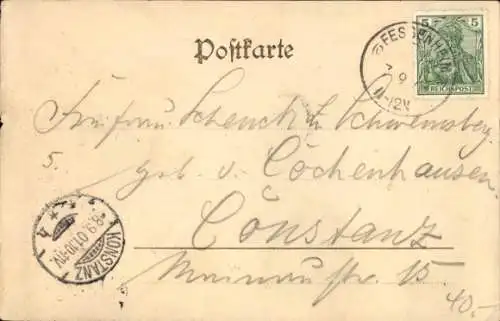 Postkarte
5 5
REICHSPOST
FESSENHEIM
9
11-12V
Freifrau Schenck z. Schweinsberg
5.
geb. v. Cochenhausen
Constanz
Mainaustr. 15
40.-
KONSTANZ
8.9.01.10-11V.